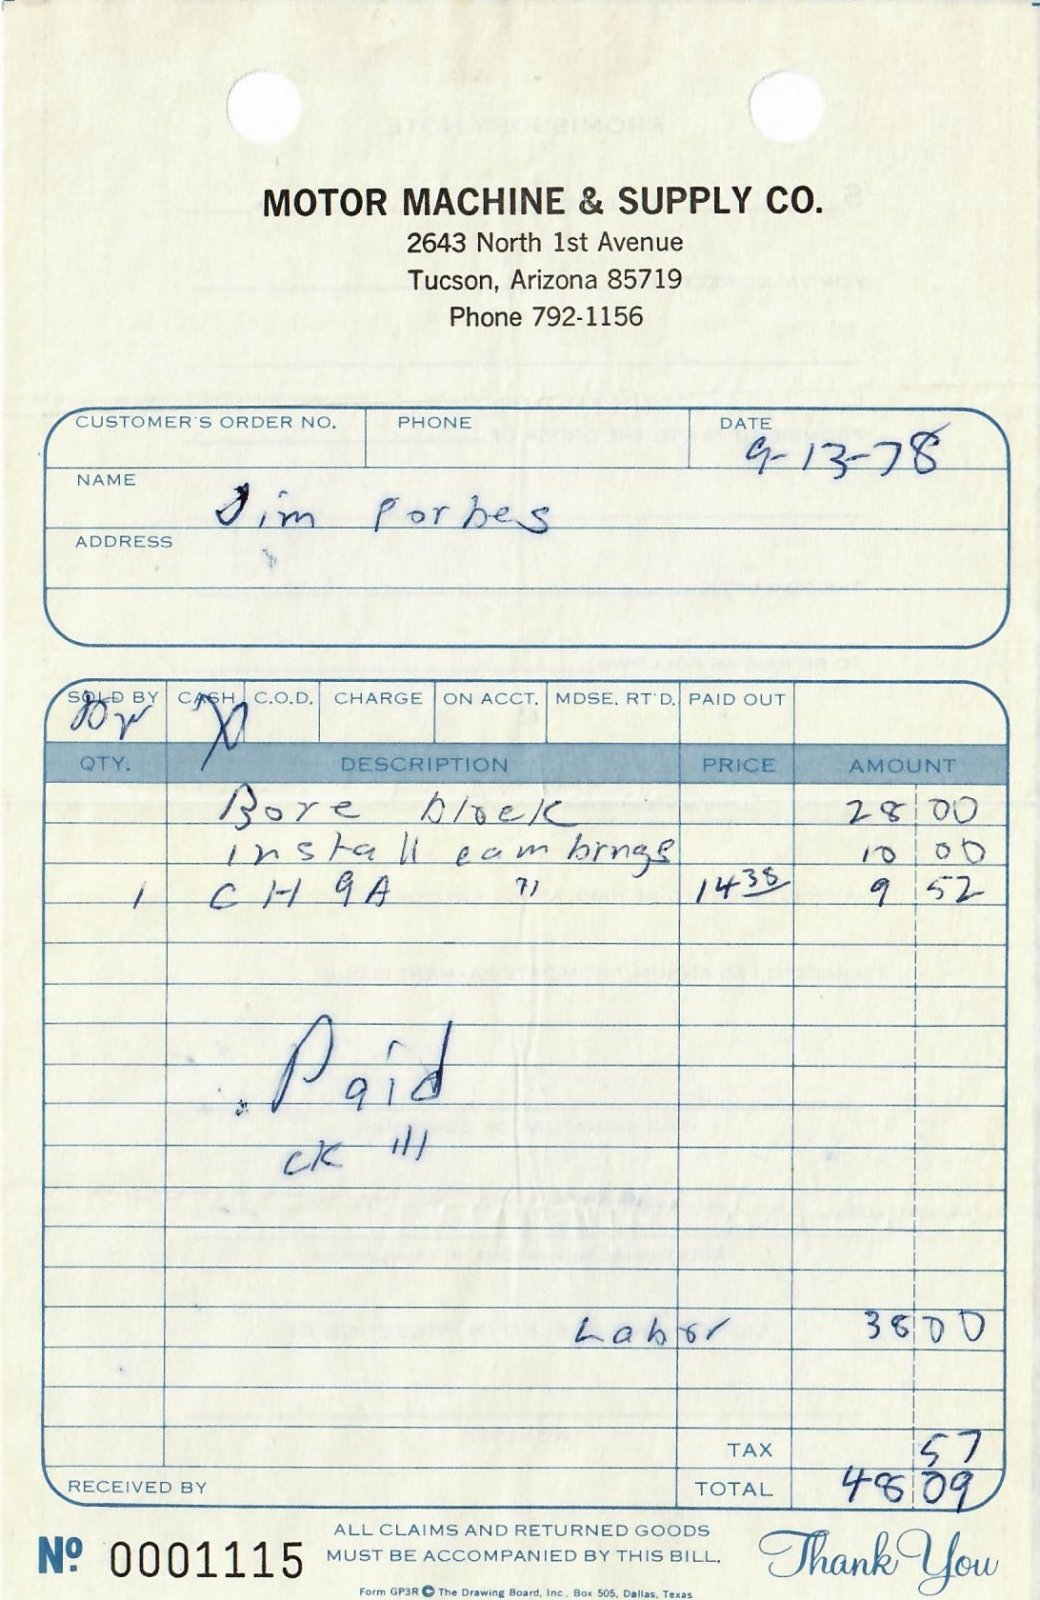 MOTOR MACHINE & SUPPLY CO.
2643 North 1st Avenue
Tucson, Arizona 85719
Phone 792-1156
CUSTOMER'S ORDER NO. PHONE DATE
9-13-78
NAME
Jim Forbes
ADDRESS
SOLD BY CASH C.O.D. CHARGE ON ACCT. MDSE. RT'D. PAID OUT
X
QTY. DESCRIPTION PRICE AMOUNT
Bore block 28 00
install cam brngs 10 00
1 CH 9A " 14 38 9 52
Paid
CK 111
Labor 38 00
TAX 57
TOTAL 48 09
RECEIVED BY
Nº 0001115
ALL CLAIMS AND RETURNED GOODS
MUST BE ACCOMPANIED BY THIS BILL.
Thank You
Form GP3R © The Drawing Board, Inc., Box 505, Dallas, Texas